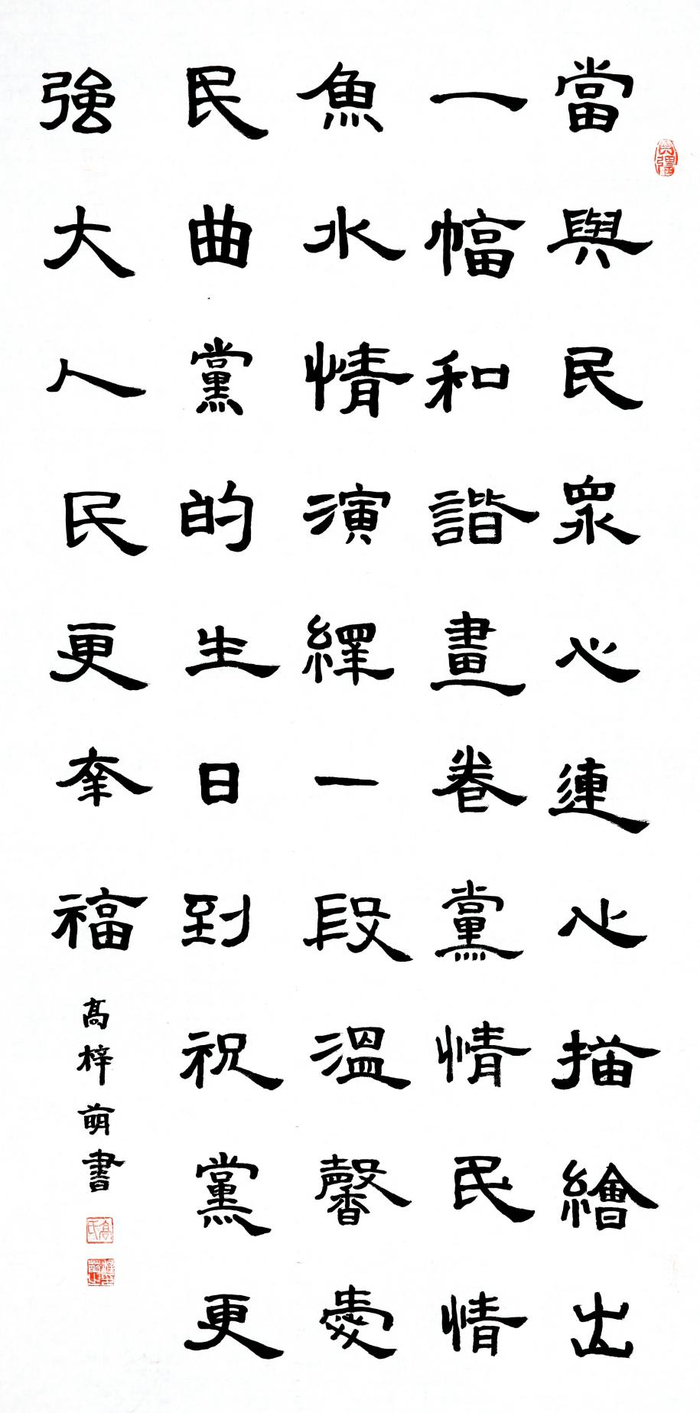 當與民眾心連心描繪出
一幅和諧畫卷黨情民情
魚水情演繹一段溫馨愛
民曲黨的生日到祝黨更
強大人民更幸福
高梓萌書